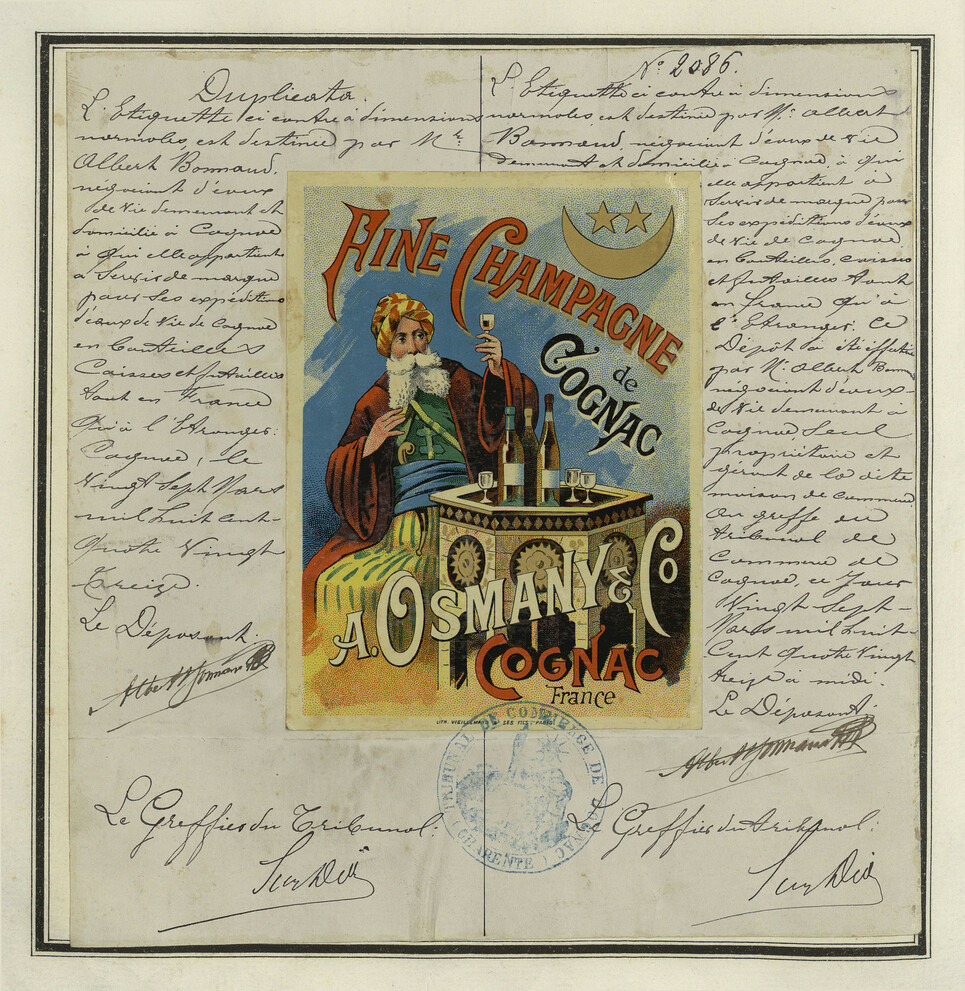 Duplicata.
L'Etiquette ci contre à dimensions
normales, est destinée par Mr
Albert Bonnaud,
négociant d'eaux
de vie demeurant et
domicilié à Cognac
à qui elle appartient
à servir de marque
pour ses expéditions
d'eaux de vie de Cognac
en bouteilles
Caisses et futailles
tant en France
qu'à l'Etranger.
Cognac, le
Vingt Sept Mars
mil huit cent-
quatre Vingt
treize.
Le Déposant.
Albert Bonnaud
No 2086.
L'Etiquette ci contre à dimensions
normales, est destinée par Mr Albert
Bonnaud, négociant d'eaux de vie
demeurant et domicilié à Cognac, à qui
elle appartient à
servir de marque pour
ses expéditions d'eaux
de vie de Cognac
en bouteilles, caisses
et futailles tant
en France qu'à
l'Etranger. Ce
Dépôt a été effectué
par Mr Albert Bonnaud
négociant d'eaux-
de vie demeurant à
Cognac, seul
propriétaire et
gérant de la dite
maison de commerce
au greffe du
tribunal de
Commerce de
Cognac, ce jour
Vingt Sept-
Mars mil huit-
Cent quatre Vingt
treize à midi.
Le Déposant.
Albert Bonnaud
FINE CHAMPAGNE
de
COGNAC
A. OSMANY & CO
COGNAC
France
LITH. VIEILLEMARD ET SES FILS, PARIS
TRIBUNAL DE COMMERCE DE COGNAC
(CHARENTE)
Le Greffier du Tribunal.
Le Greffier du tribunal.